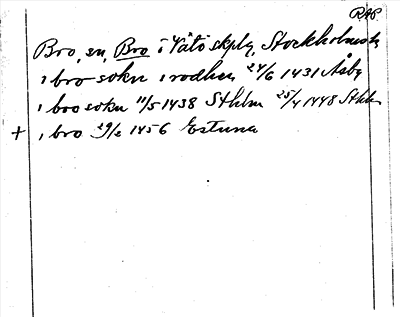 RAP
Bro, sn, Bro i Vätö skplg, Stockholms lg
i bro sokn i rodhen 24/6 1431 Åsby
i broo sokn 11/5 1438 Sthlm 25/4 1448 Sthlm
+ i bro 29/2 1456 Estuna